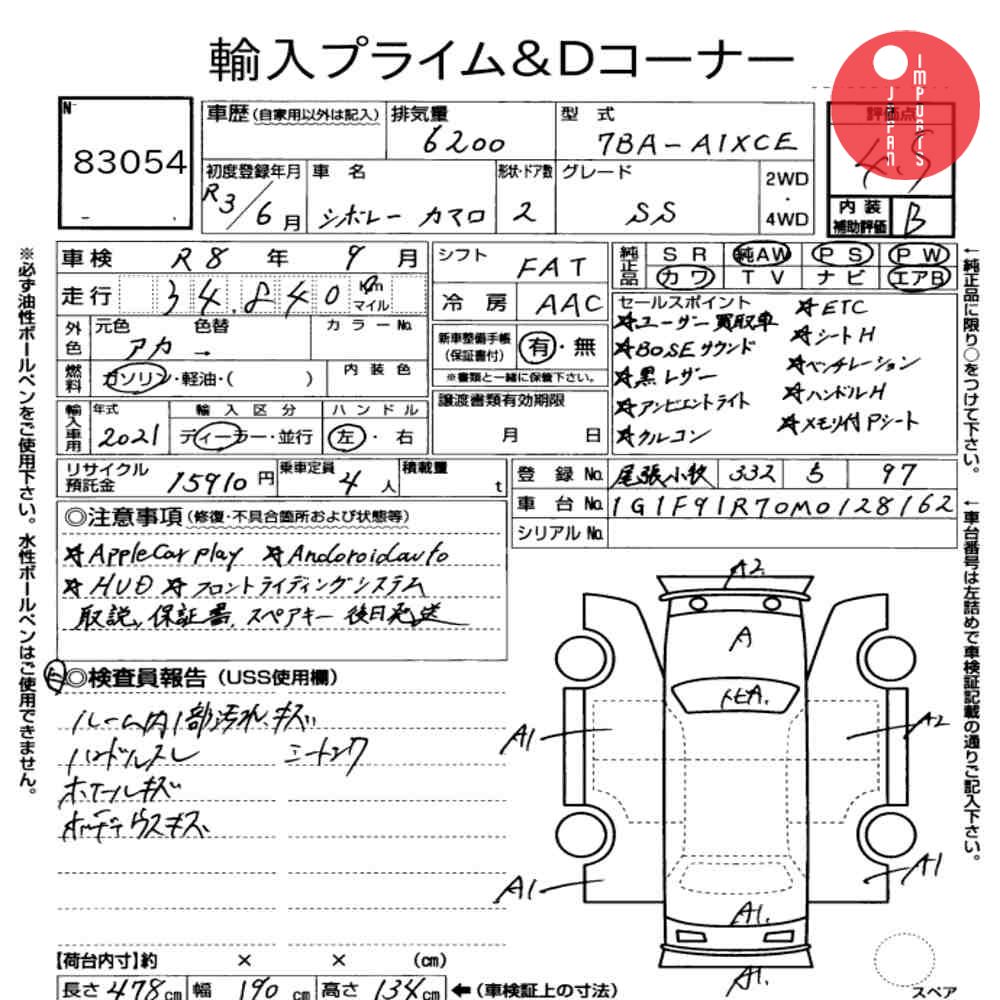 輸入プライム&Dコーナー
JAPAN IMPORTS
№ 83054
車歴 (自家用以外は記入) 排気量 6200 型式 7BA-A1XCE 評価点 4.5
初度登録年月 R3/6月 車名 シボレー カマロ 形状・ドア数 2 グレード SS 2WD・4WD 内装補助評価 B
車検 R8年 9月 シフト FAT 純正品 SR 純AW PS PW
走行 34,840 Km マイル 冷房 AAC カワ TV ナビ エアB
外色 元色 アカ 色替 → カラーNo.
燃料 ガソリン・軽油・( ) 内装色
新車整備手帳 (保証書付) 有・無
※書類と一緒に保管下さい。
セールスポイント
☆ユーザー買取車 ☆ETC
☆BOSEサウンド ☆シートH
☆黒レザー ☆ベンチレーション
☆アンビエントライト ☆ハンドルH
☆クルコン ☆メモリ付Pシート
輸入車用 年式 2021 輸入区分 ディーラー・並行 ハンドル 左・右
譲渡書類有効期限 月 日
リサイクル預託金 15910円 乗車定員 4人 積載量 t
登録No. 尾張小牧 332 ら 97
車台No. 1G1F91R70M0128162
シリアルNo.
◎注意事項 (修復・不具合箇所および状態等)
☆AppleCarplay ☆Andoroidauto
☆HUD ☆フロントライディングシステム
取説、保証書、スペアキー 後日発送
◎検査員報告 (USS使用欄)
ルーム内1部汚れ、キズ
ハンドルスレ
ホイールキズ
ボディウスキズ
A2
A
トビA.
A1
A2
A1
A1
A1.
A1.
【荷台内寸】約 × × (cm)
長さ 478cm 幅 190cm 高さ 134cm ←(車検証上の寸法)
スペア
※必ず油性ボールペンをご使用下さい。水性ボールペンはご使用できません。
←純正品に限り○をつけて下さい。
←車台番号は左詰めで車検証記載の通りご記入下さい。